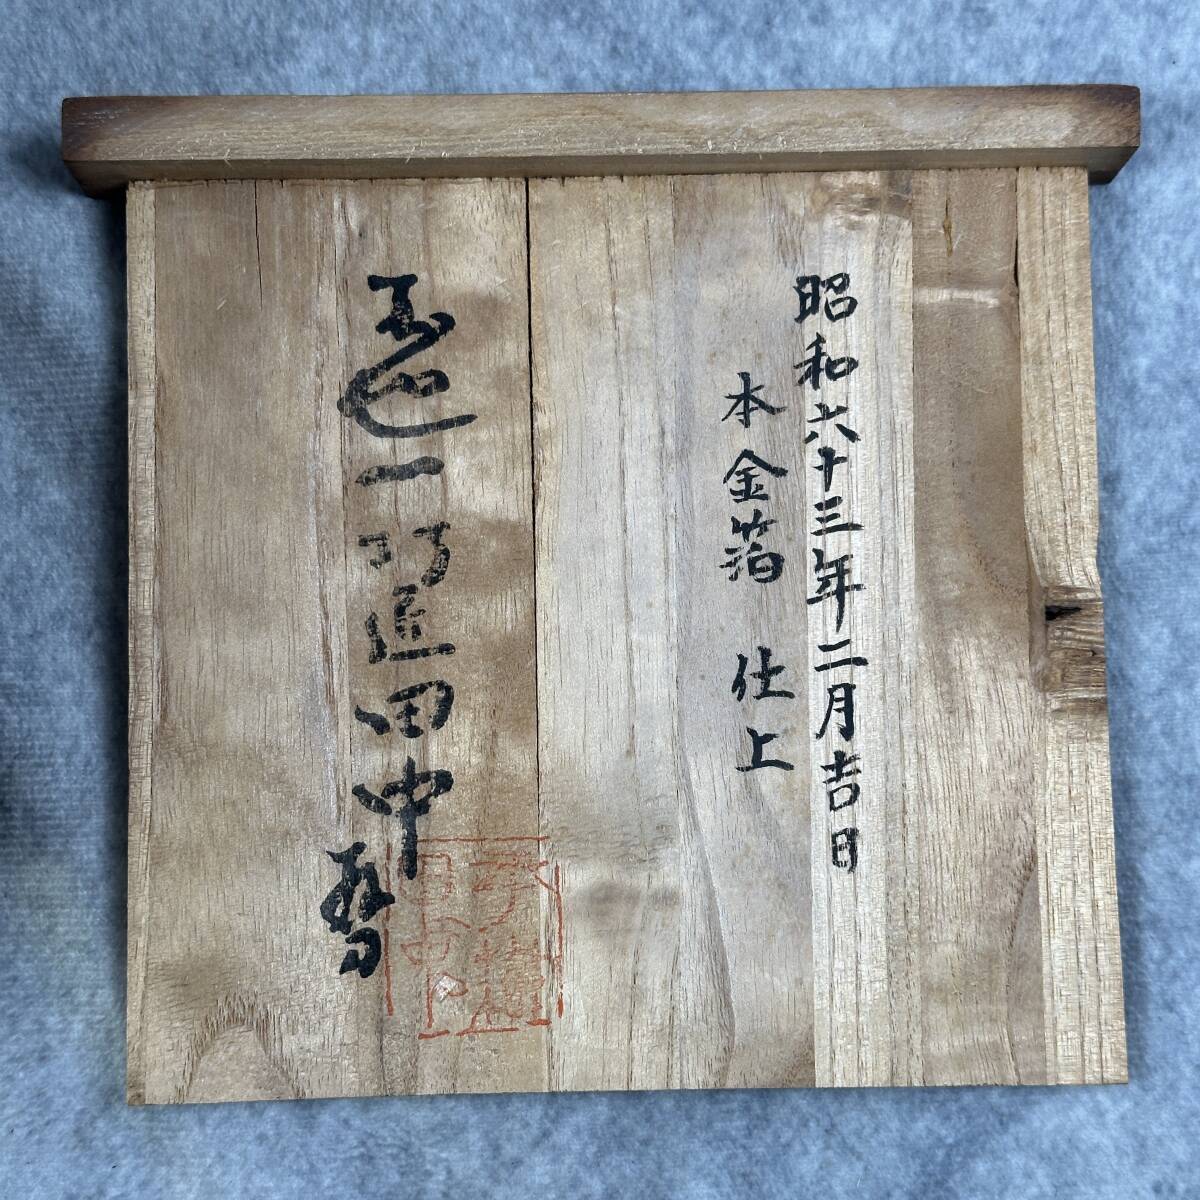 昭和六十三年二月吉日
本金箔 仕上
一刀匠田中